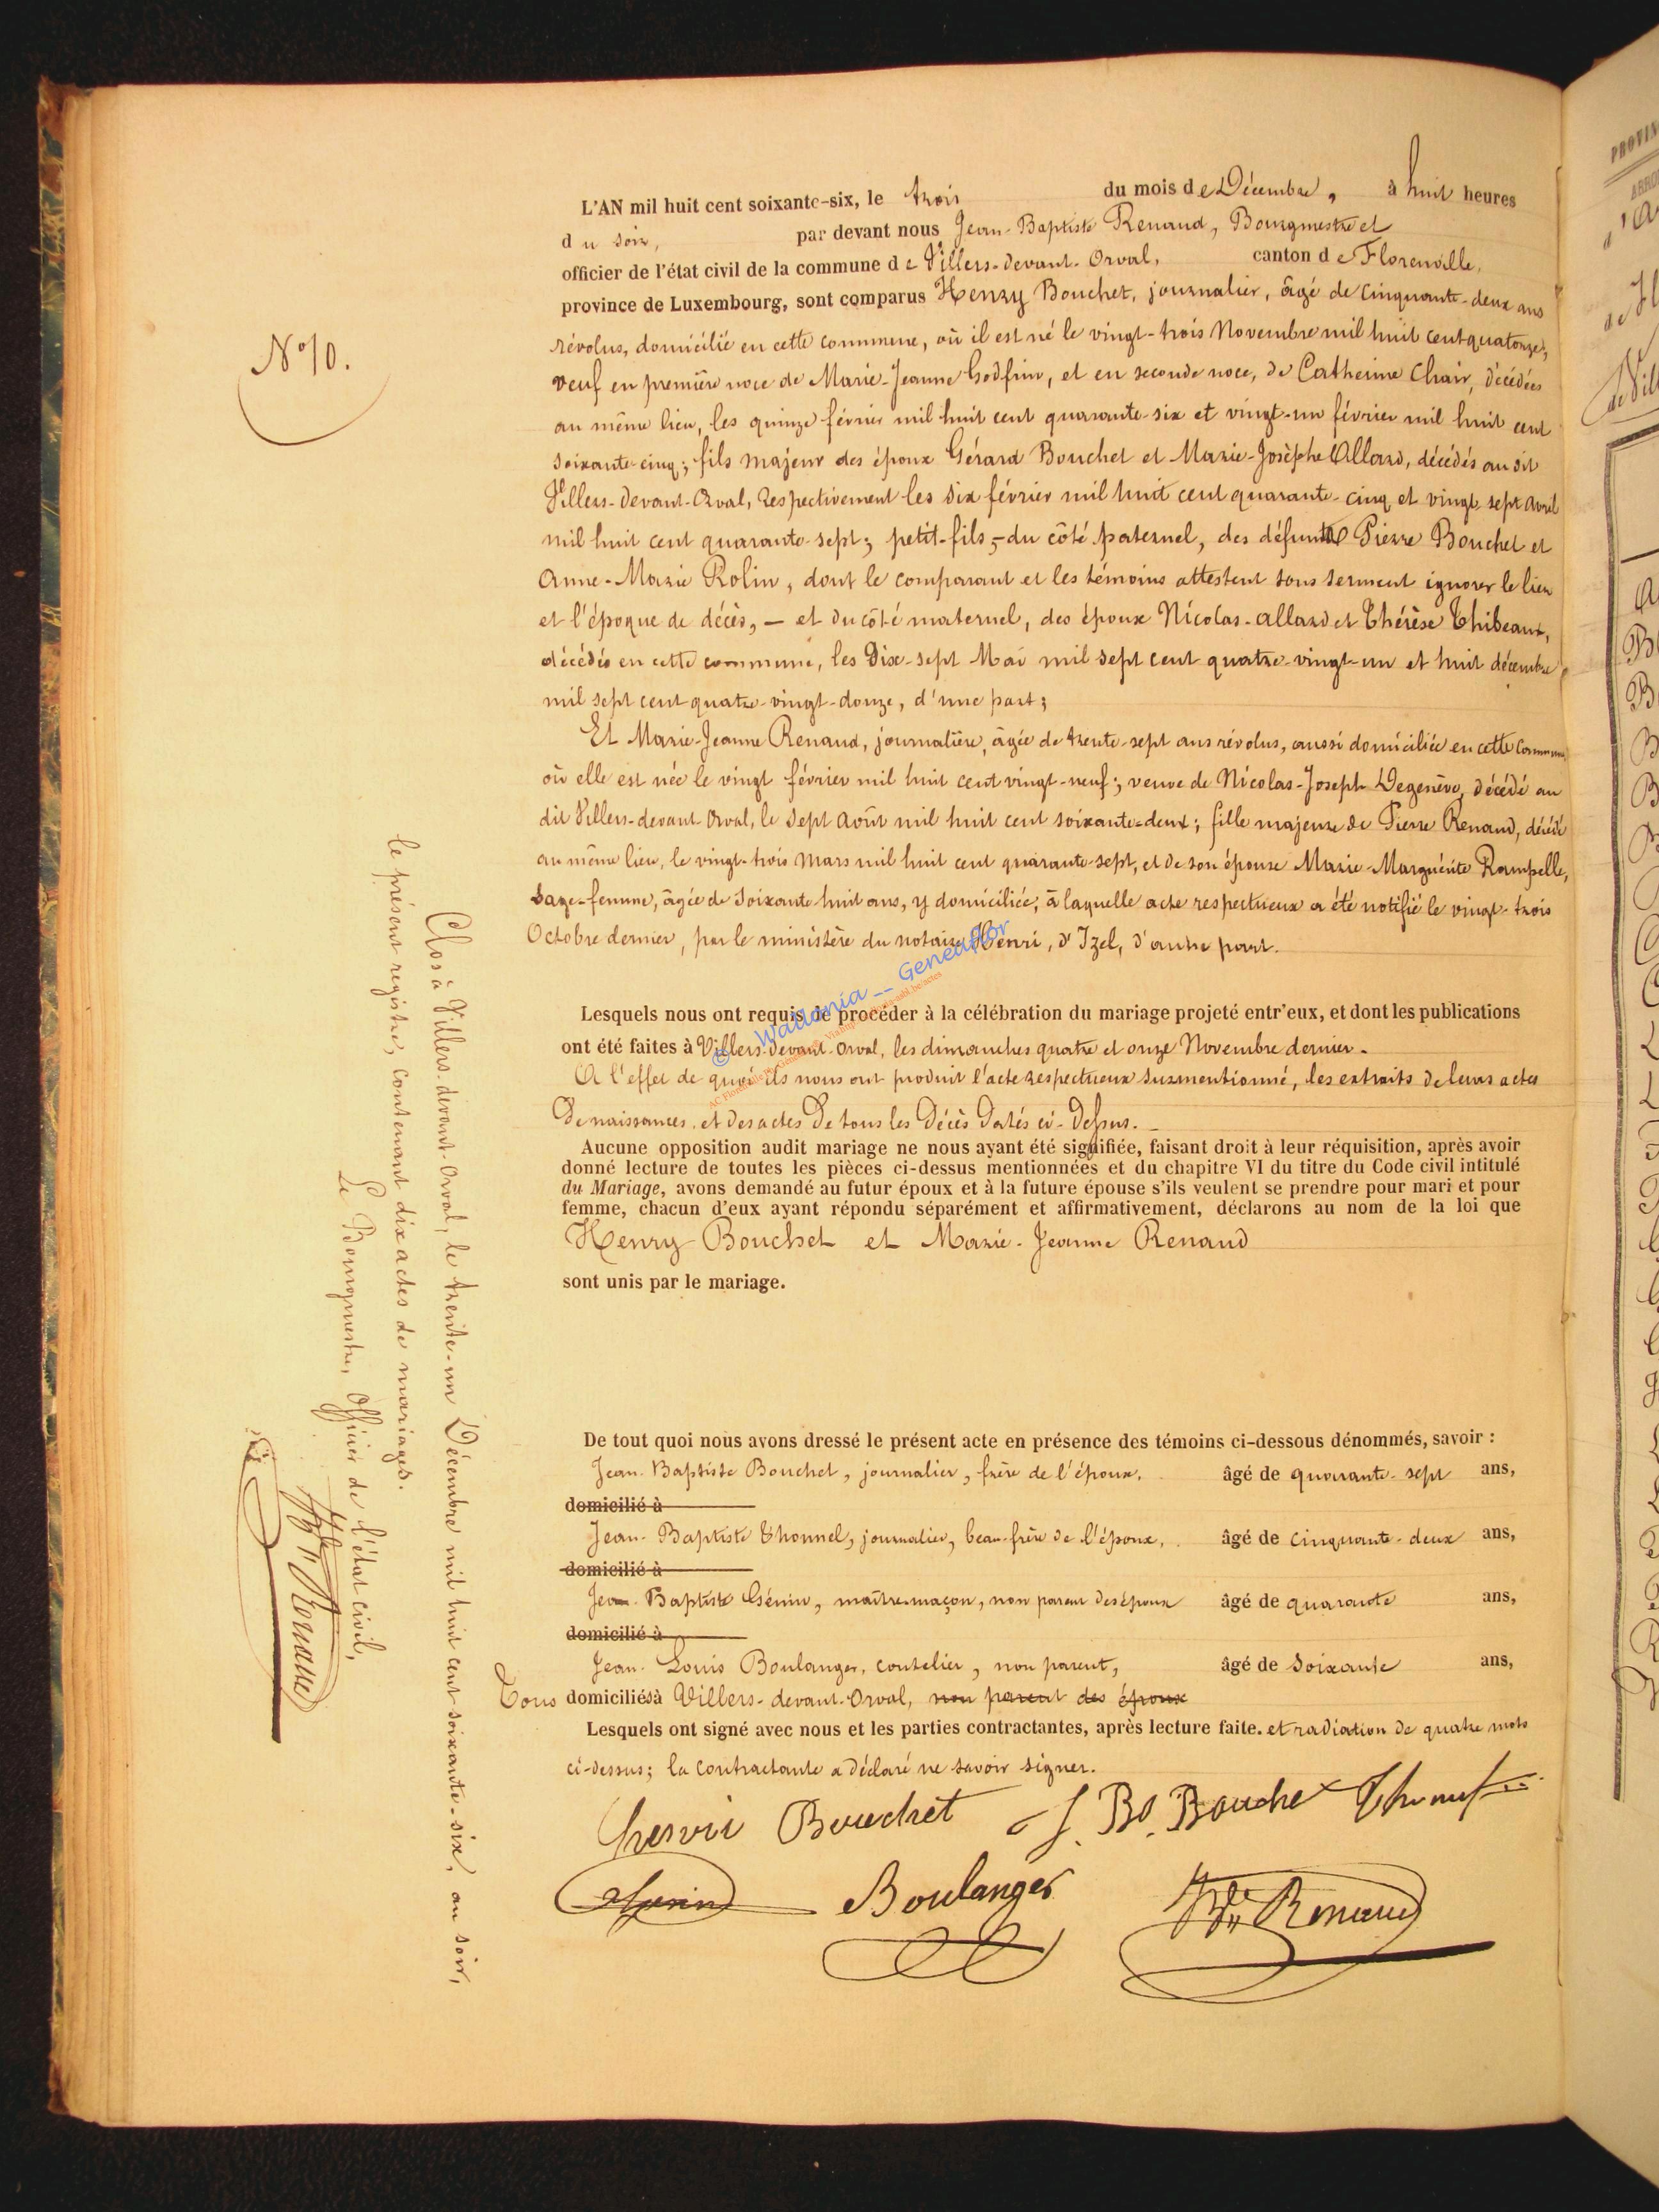 N° 10.
L'AN mil huit cent soixante-six, le trois du mois de Décembre, à huit heures
du soir, par devant nous Jean-Baptiste Renaud, Bourgmestre et
officier de l'état civil de la commune de Villers-devant-Orval, canton de Florenville,
province de Luxembourg, sont comparus Henry Bouchet, journalier, âgé de cinquante-deux ans
révolus, domicilié en cette commune, où il est né le vingt-trois Novembre mil huit cent quatorze,
veuf en première noce de Marie-Jeanne Godfrin, et en seconde noce, de Catherine Chair, décédées
au même lieu, les quinze février mil huit cent quarante-six et vingt-un février mil huit cent
soixante-cinq; fils majeur des époux Gérard Bouchet et Marie-Josèphe Allard, décédés au dit
Villers-devant-Orval, respectivement les six février mil huit cent quarante-cinq et vingt-sept avril
mil huit cent quarante-sept; petit-fils,-du côté paternel, des défunts Pierre Bouchet et
Anne-Marie Rolin, dont le comparant et les témoins attestent sous serment ignorer le lieu
et l'époque de décès, — et du côté maternel, des époux Nicolas-Allard et Thérèse Thibeaux,
décédés en cette commune, les Dix-sept Mai mil sept cent quatre-vingt-un et huit décembre
mil sept cent quatre-vingt-douze, d'une part;
Et Marie-Jeanne Renaud, journalière, âgée de trente-sept ans révolus, aussi domiciliée en cette commune
où elle est née le vingt février mil huit cent vingt-neuf; veuve de Nicolas-Joseph Degenève, décédé au
dit Villers-devant-Orval, le sept août mil huit cent soixante-deux; fille majeure de Pierre Renaud, décédé
au même lieu, le vingt-trois mars mil huit cent quarante-sept, et de son épouse Marie-Marguérite Rampelle,
sage-femme, âgée de soixante huit ans, y domiciliée; à laquelle acte respectueux a été notifié le vingt-trois
Octobre dernier, par le ministère du notaire Henri, d'Izel, d'autre part.
© Wallonia -- Geneaflor
Lesquels nous ont requis de procéder à la célébration du mariage projeté entr'eux, et dont les publications
ont été faites à Villers-devant-Orval, les dimanches quatre et onze Novembre dernier.
A l'effet de quoi ils nous ont produit l'acte respectueux susmentionné, les extraits de leurs actes
De naissances, et des actes De tous les Décès Datés ci-Dessus.
Aucune opposition audit mariage ne nous ayant été signifiée, faisant droit à leur réquisition, après avoir
donné lecture de toutes les pièces ci-dessus mentionnées et du chapitre VI du titre du Code civil intitulé
du Mariage, avons demandé au futur époux et à la future épouse s'ils veulent se prendre pour mari et pour
femme, chacun d'eux ayant répondu séparément et affirmativement, déclarons au nom de la loi que
Henry Bouchet et Marie-Jeanne Renaud
sont unis par le mariage.
De tout quoi nous avons dressé le présent acte en présence des témoins ci-dessous dénommés, savoir :
Jean-Baptiste Bouchet, journalier, frère de l'époux, âgé de quarante-sept ans,
domicilié à
Jean-Baptiste Thonnel, journalier, beau-frère de l'époux, âgé de cinquante-deux ans,
domicilié à
Jean-Baptiste Génin, maître-maçon, non parent des époux âgé de quarante ans,
domicilié à
Jean-Louis Boulanger, coutelier, non parent, âgé de soixante ans,
Tous domiciliés à Villers-devant-Orval, non parent des époux
Lesquels ont signé avec nous et les parties contractantes, après lecture faite. et radiation de quatre mots
ci-dessus; la contractante a déclaré ne savoir signer.
henri Bouchet J. B. Bouchet
Boulanger Renaud
Clos à Villers-devant-Orval, le trente-un Décembre mil huit cent soixante-six, au soir,
le présent registre, contenant dix actes de mariages.
Le Bourgmestre, Officier de l'état civil,
Renaud